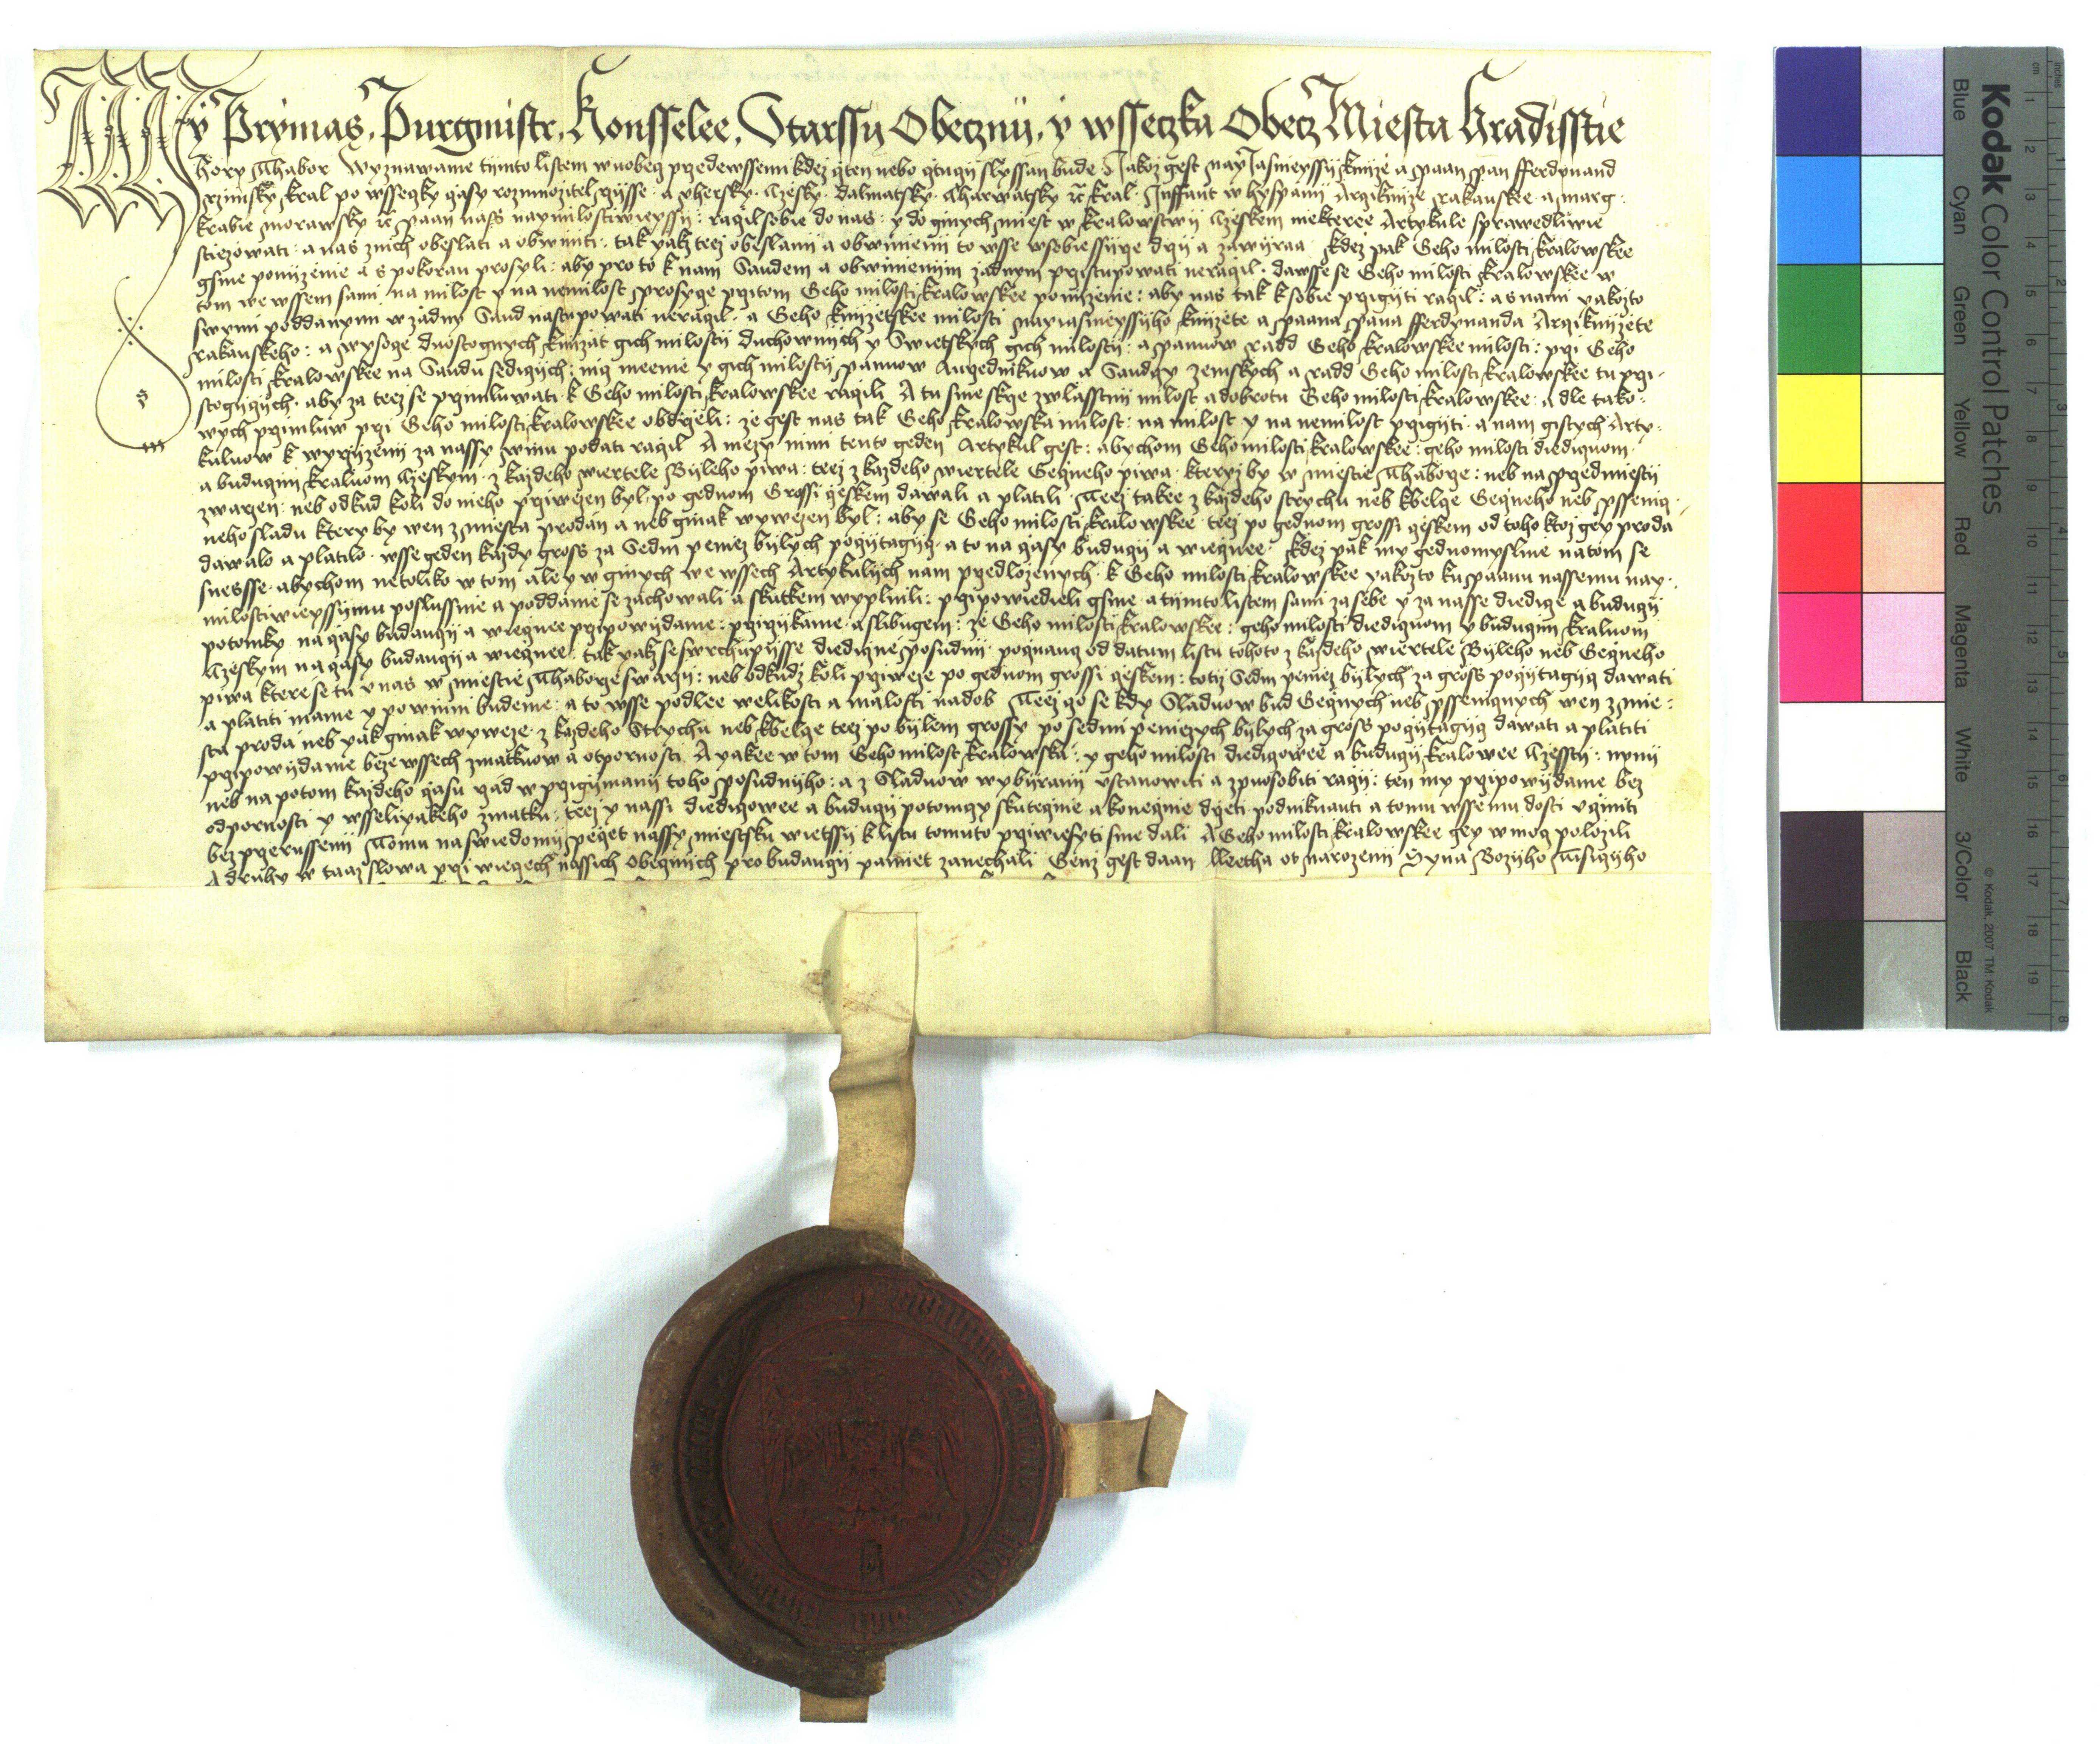 My Prymas, Purgmistr, Konsselee, Starssy Obecznii, y wsseczka Obecz Miesta Hradisstie
Hory Thabor Wyznawame tijmto listem wuobecz przedewssemi kdez cżten nebo cżtucy slyssan bude Jakoz gest nay Jasnieyssy knijze a Pan Pan Fferdynand
Rzimsky kral po wsseczky cżasy rozmnozitel rzijsse a Vhersky Cżesky Dalmatsky Charwatsky ꝛc kral Inffant w hyspanij Arcyknijze Rakauskee a marg-
krabie morawsky ꝛc Pan nass naymilostiwieyssy racżil sobie do nas y do ginych miest w kralowstwij Cżeskem niekteree Artykule sprawedliwie
stiezowati a nas znich obeslati a obwiniti tak yakz teez obeslanij a obwinienij to wsse w sobie ssyrze drzij a zawijraa kdez pak Geho milosti kralowskee
gsme ponijzenie a s pokorau prosyli aby pro to k nam Saudem a obwinienijm zadnym przistupowati neracżil dawsse se Geho milosti kralowskee w
tom we wssem sami na milost y na nemilost prosyce przitom Geho milosti kralowskee ponijzenie aby nas tak k sobie przigijti racżil a s nami yakozto
swymi poddanymi w zadny Saud nastupowati neracżil a Geho knijzetskee milosti nayiasnieyssyho knijzete a Pana Pana Fferdynanda Arcyknijzete
Rakauskeho a wysocze duostognych knijzat gich milostij duchownich y Swietskych gich milostij a Panuow Radd Geho kralowskee milosti przi Geho
milosti kralowskee na Saudu sedicych nic meenie y gich milostij Panuow Aurzednikuow a Saudcy zemskych a Radd Geho milosti kralowskee tu przi-
stogicych aby za teez se przimluwati k Geho milosti kralowskee racżili A tu sme skrze zwlasstnij milost a dobrotu Geho milosti kralowskee a dle tako-
wych przimluw przi Geho milosti kralowskee obdrzeli ze gest nas tak Geho kralowska milost na milost y na nemilost przigijti a nam gistych Arty-
kuluow k wyrzijzenij za nassy winu podati racżil A mezy nimi tento geden Artykul gest abychom Geho milosti kralowskee geho milosti diedicżuom
a buducym kraluom Cżeskym z kazdeho wiertele Bijleho piwa teez z kazdeho wiertele Gecżneho piwa kteryz by w miestie Thaborze neb na przedmiestij
zwarzen neb odkud koli do nieho przywezen byl po gednom Grossi cżeskem dawali a platili Teez takee z kazdeho strychu neb kbelce Gecżneho neb pssenicż-
neho sladu ktery by wen z miesta prodan a neb ginak wywezen byl aby se Geho milosti kralowskee teez po gednom grossi cżeskem od toho ktoz gey proda
dawalo a platilo wsse geden kazdy gross za Sedm peniez bijlych pocżijtagijc a to na cżasy buducy a wiecżnee kdez pak my gednomyslnie na tom se
snesse abychom netoliko w tom ale y w ginych we wssech Artykulijch nam przedlozenych k Geho milosti kralowskee yakozto ku Panu nassemu nay-
milostiwieyssymu poslussnie a poddanie se zachowali a skutkem wyplnili przipowiedieli gsme a tijmto listem sami za sebe y za nasse diedice a buducy
potomky na cżasy buducy a wiecżnee przipowijdame przirzijkame a slibugem ze Geho milosti kralowskee geho milosti diedicżuom y buducym kraluom
Cżeskym na cżasy buducy a wiecżnee tak yakz se swrchu pijsse diedicżnee posudnij pocżnauc od datum listu tohoto z kazdeho wiertele Bijleho neb Gecżneho
piwa ktere se tu v nas w miestie Thaborze swarzij neb odkudz koli przyweze po gednom grossi cżeskem totiz Sedm peniez bijlych za gross pocżijtagijc dawati
a platiti mame y powinni budeme a to wsse podlee welikosti a malosti nadob Teez co se kdy Sladuow bud Gecżnych neb pssenicżnych wen z mie-
sta proda neb yak ginak wyweze z kazdeho Strychu neb kbelce teez po bijlem grossy po sedmi peniezych bijlych za gross pocżijtagijc dawati a platiti
przipowijdame beze wssech zmatkuow a otpornosti A yakee w tom Geho milost kralowska y geho milosti diedicowee a buducy kralowee Cżesstij nynij
neb na potom kazdeho cżasu rzad w przigijmanij toho posudnijho a z Sladuow wybijranij vstanowiti a zpuosobiti racżij ten my przipowijdame bez
odpornosti y wsseliyakeho zmatku teez y nassi diedicowee a buducy potomcy skutecżnie a konecżnie drzeti podniknauti a tomu wssemu dosti vcżiniti
bez przerussenij Tomu na swiedomij pecżet nassy miestsku wietssy k listu tomuto przywiesyti sme dali A Geho milosti kralowskee gey w moc polozili
A druhy w taaz slowa przi wiecech nassich Obecznijch pro buducy pamiet zanechali Genz gest daan Leetha ot narozenij Syna Bozijho Tisycyho
Kodak Color Control Patches
Blue Cyan Green Yellow Red Magenta White 3/Color Black
© Kodak, 2007 TM: Kodak
cm 1 2 3 4 5 6 7 8 9 10 11 12 13 14 15 16 17 18 19
inches 1 2 3 4 5 6 7 8